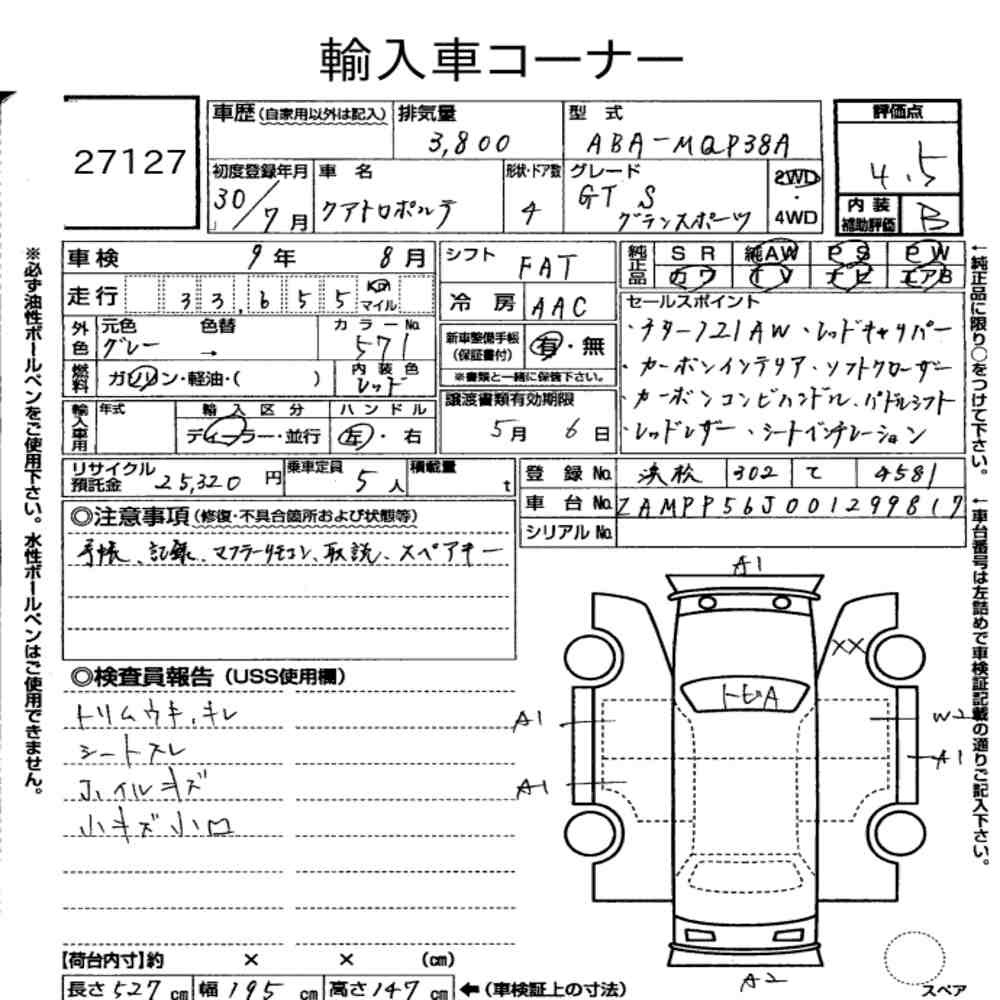 輸入車コーナー
27127
車歴 (自家用以外は記入) 排気量 3,800 型式 ABA-MQP38A
評価点 4.5
内装補助評価 B
初度登録年月 30/7月 車名 クアトロポルテ 形状・ドア数 4 グレード GT S グランスポーツ 2WD・4WD
車検 9年 8月
走行 33,655 Km マイル
シフト FAT
冷房 AAC
純正品 SR 純AW PS PW
カワ TV ナビ エアB
外色 元色 グレー 色替 → カラーNo. 571
燃料 ガソリン・軽油・( ) 内装色 レッド
新車整備手帳(保証書付) 有・無
※書類と一緒に保管下さい。
セールスポイント
・チター/21AW・レッドキャリパー
・カーボンインテリア・ソフトクローザー
・カーボンコンビハンドル、パドルシフト
・レッドレザー・シートベンチレーション
輸入車用 年式 輸入区分 ディーラー・並行 ハンドル 左・右
譲渡書類有効期限 5月 6日
リサイクル預託金 25,320円 乗車定員 5人 積載量 t
登録No. 浜松 302 て 4581
車台No. ZAMPP56J001299817
シリアルNo.
◎注意事項 (修復・不具合箇所および状態等)
手帳、記録、マフラーリモコン、取説、スペアキー
◎検査員報告 (USS使用欄)
トリムウキ、キレ
シートスレ
ホイルキズ
小キズ小凹
A1
XX
トビA
A1
W2
A1
A1
A2
スペア
【荷台内寸】約 × × (cm)
長さ527cm 幅195cm 高さ147cm ←(車検証上の寸法)
※必ず油性ボールペンをご使用下さい。水性ボールペンはご使用できません。
←純正品に限り○をつけて下さい。
←車台番号は左詰めで車検証記載の通りご記入下さい。